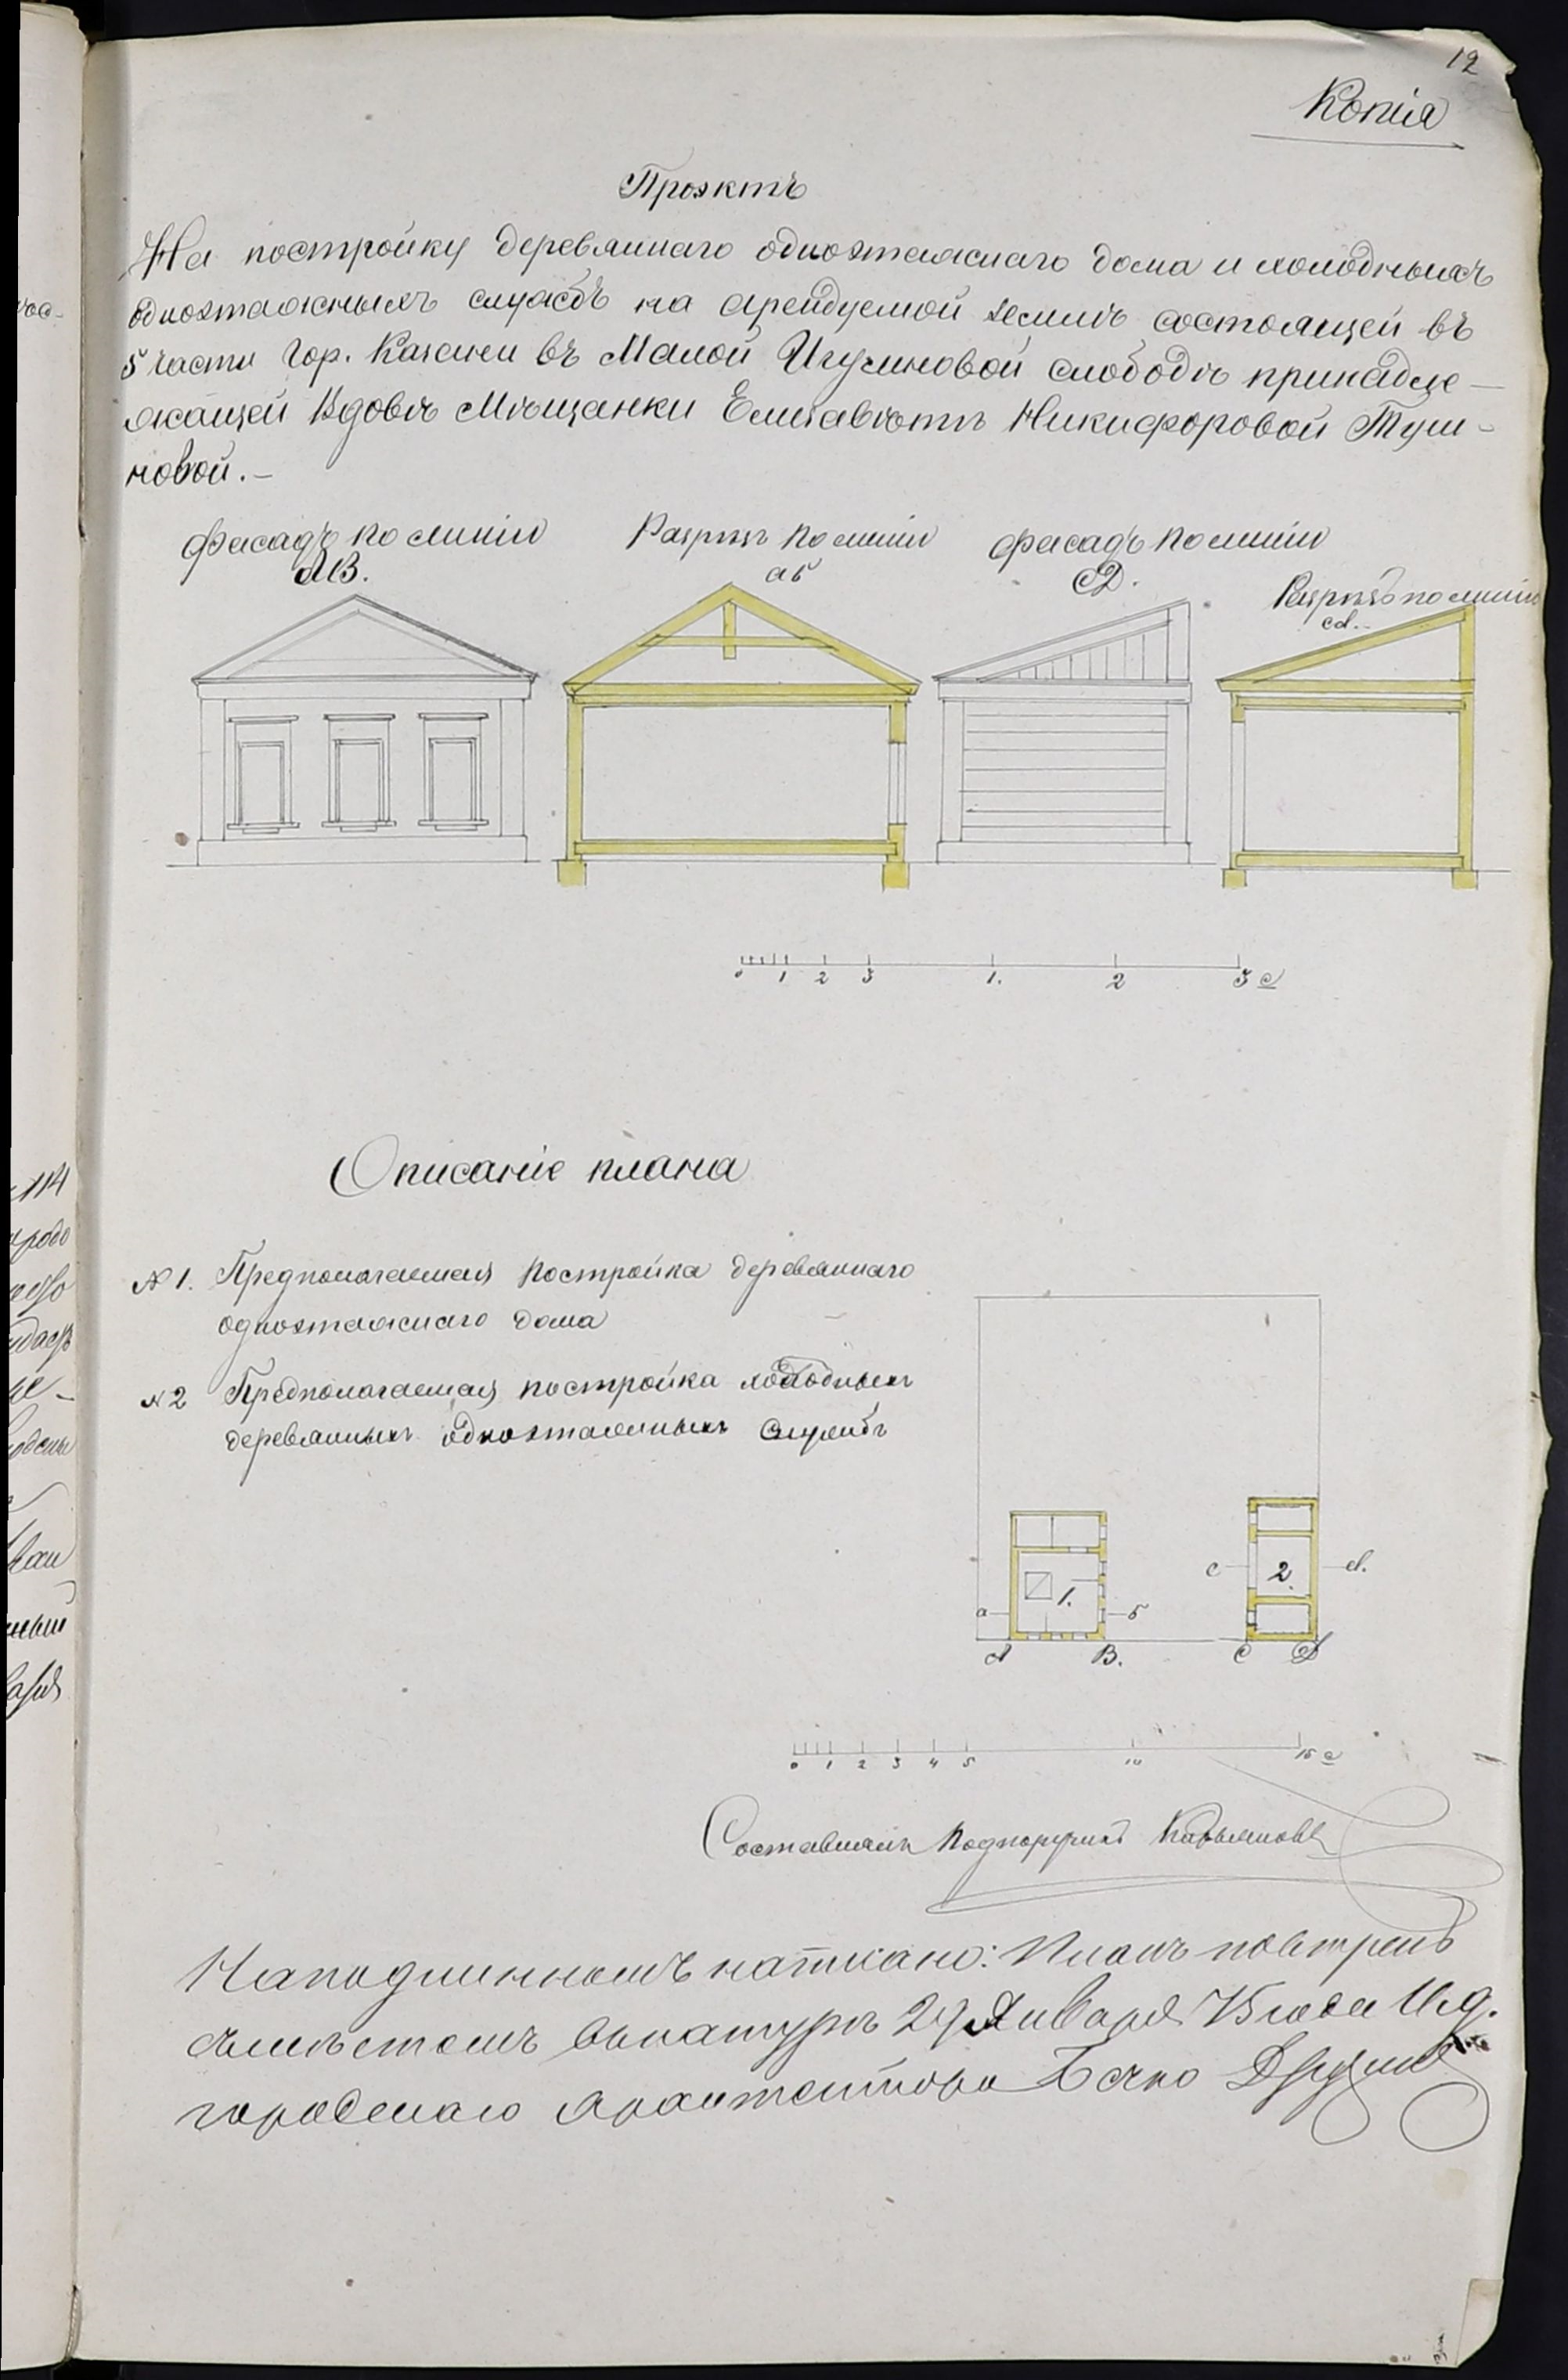 12
Копія
Проэктъ
На постройку деревяннаго одноэтажнаго дома и холодныхъ
одноэтажныхъ службъ на арендуемой землѣ состоящей въ
5 части Гор. Казани въ Малой Игумновой слободѣ принадле-
жащей Вдовѣ Мѣщанки Елисаветѣ Никифоровой Туш-
новой.-
фасадъ по линіи
АВ.
Разрѣзъ по линіи
аб
фасадъ по линіи
СД.
Разрѣзъ по линіи
cd.
0 1 2 3 1. 2 3 с
Описаніе плана
№ 1. Предполагаемая постройка деревяннаго
одноэтажнаго дома
№ 2 Предполагаемая постройка холодныхъ
деревянныхъ одноэтажныхъ службъ
c 2. d.
а 1. б
А В. С Д
0 1 2 3 4 5 10 15 с
Составлялъ Подпоручикъ
На подлинномъ написано: Планъ повѣренъ
съ мѣстомъ въ натурѣ 29 Января 75 года И.д.
городскаго Архитектора